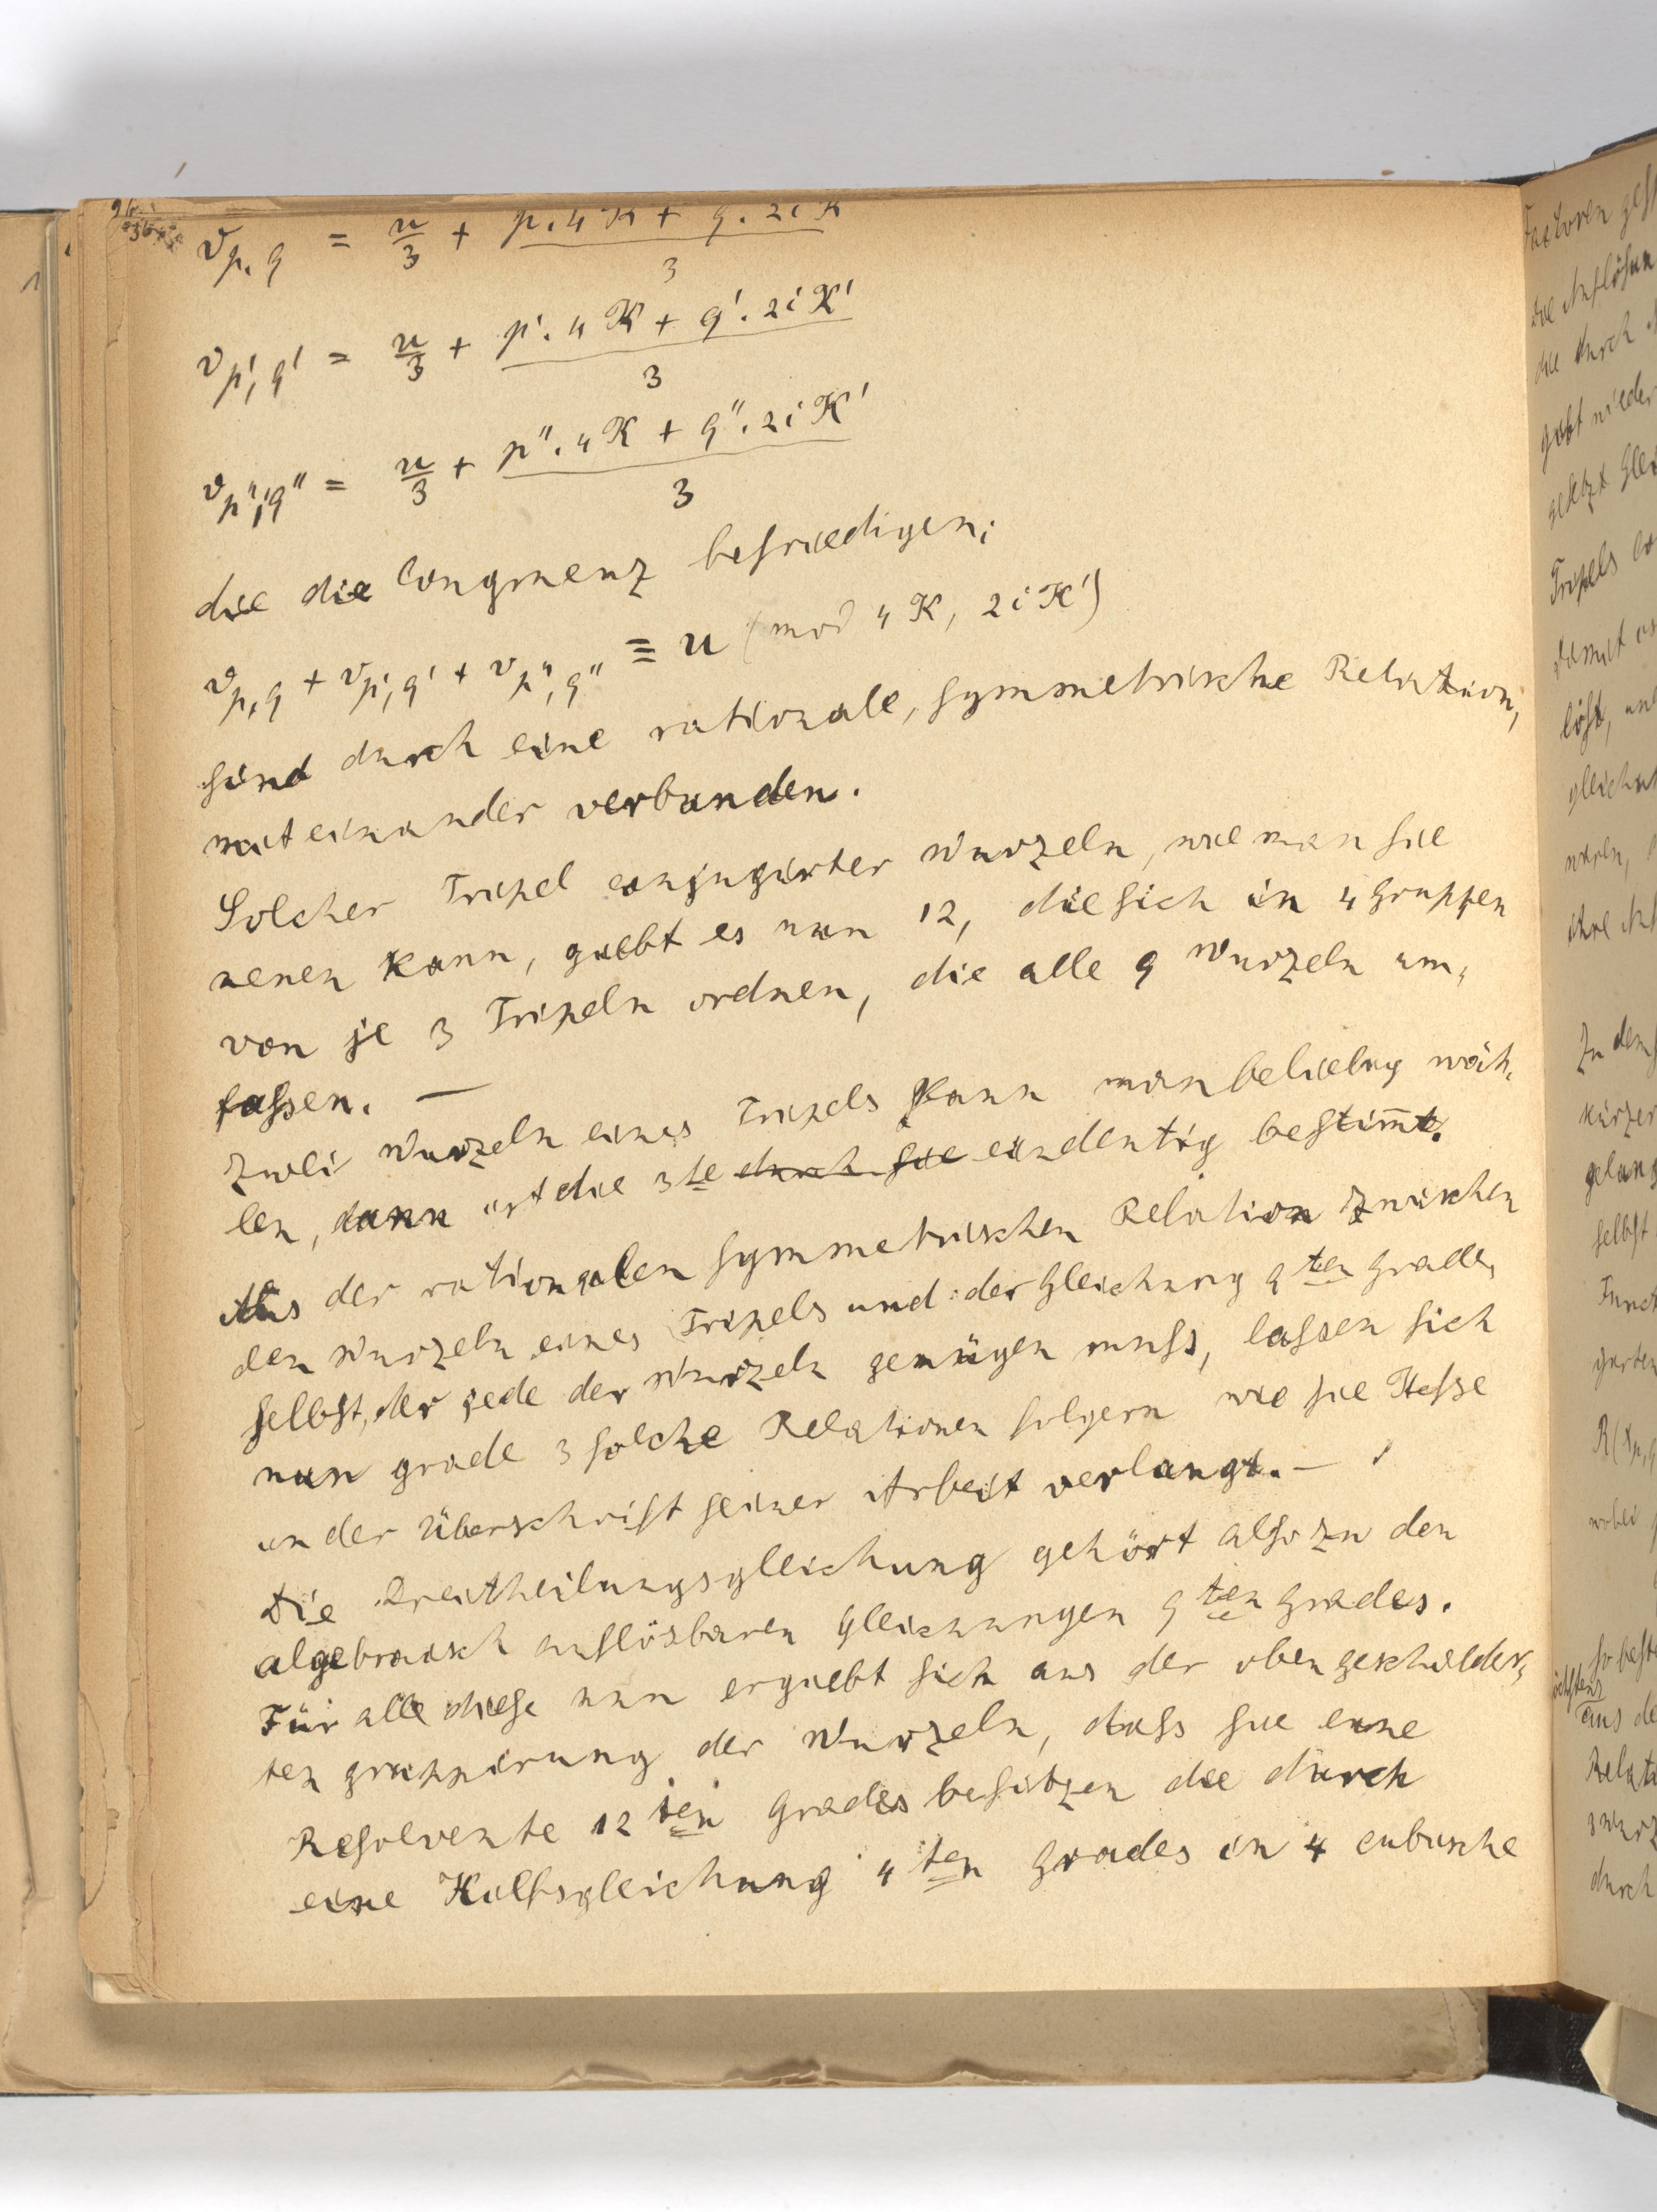 v_{p, q} = u/3 + (p. 4K + q. 2iK')/3
v_{p', q'} = u/3 + (p'. 4K + q'. 2iK')/3
v_{p'', q''} = u/3 + (p''. 4K + q''. 2iK')/3
die die Congruenz befriedigen:
v_{p, q} + v_{p', q'} + v_{p'', q''} ≡ u (mod 4K, 2iK')
sind durch eine rationale, symmetrische Relation,
mit einander verbunden.
Solcher Tripel conjugirter Wurzeln, wie man sie
nenen kann, giebt es nun 12, die sich in 4 Gruppen
von je 3 Tripeln ordnen, die alle 9 Wurzeln um-
fassen. —
Zwei Wurzeln eines Tripels kann man beliebig wäh-
len, dann ist die 3te durch sie eindeutig bestim̅t.
Aus der rationalen symmetrischen Relation zwischen
den Wurzeln eines Tripels und der Gleichung 9ten Grades
selbst, der jede der Wurzeln genügen muss, lassen sich
nun grade 3 solche Relationen folgern wie sie Hesse
in der Überschrift seiner Arbeit verlangt. —
Die Dreitheilungsgleichung gehört also zu den
algebraisch auflösbaren Gleichungen 9ten Grades.
Für alle diese nun ergiebt sich aus der oben geschilder-
ten Gruppirung der Wurzeln, dass sie eine
Resolvente 12ten Grades besitzen die durch
eine Hilfsgleichung 4ten Grades in 4 cubische
Factoren
die Auflösun
die durch
gebt wieder
gesetzt Glei
Tripels
damit
löst, un
gleichu
waren,
ihre Auf
Zu dem
kürzer
gelang
selbst
Funct
garten
R(x_{p, q
wobei
so beste
aus de
Relati
durch